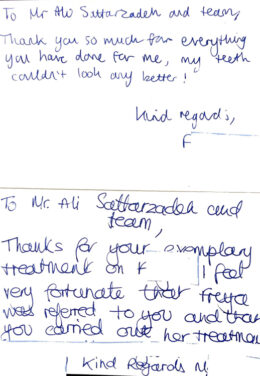 To Mr Ali Sattarzadeh and team,
Thank you so much for everything
you have done for me, my teeth
couldn't look any better!
Kind regards,
F
To Mr. Ali Sattarzadeh and
team,
Thanks for your exemplary
treatment on F
I feel
very fortunate that Freya
was referred to you and that
you carried out her treatment
Kind Regards N